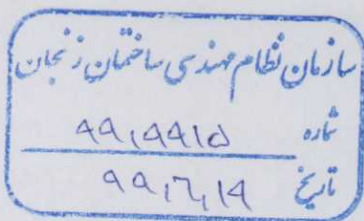 سازمان نظام مهندسی ساختمان زنجان
شماره ۹۹,۹۹۱۵
تاریخ ۹۹,۶,۱۹